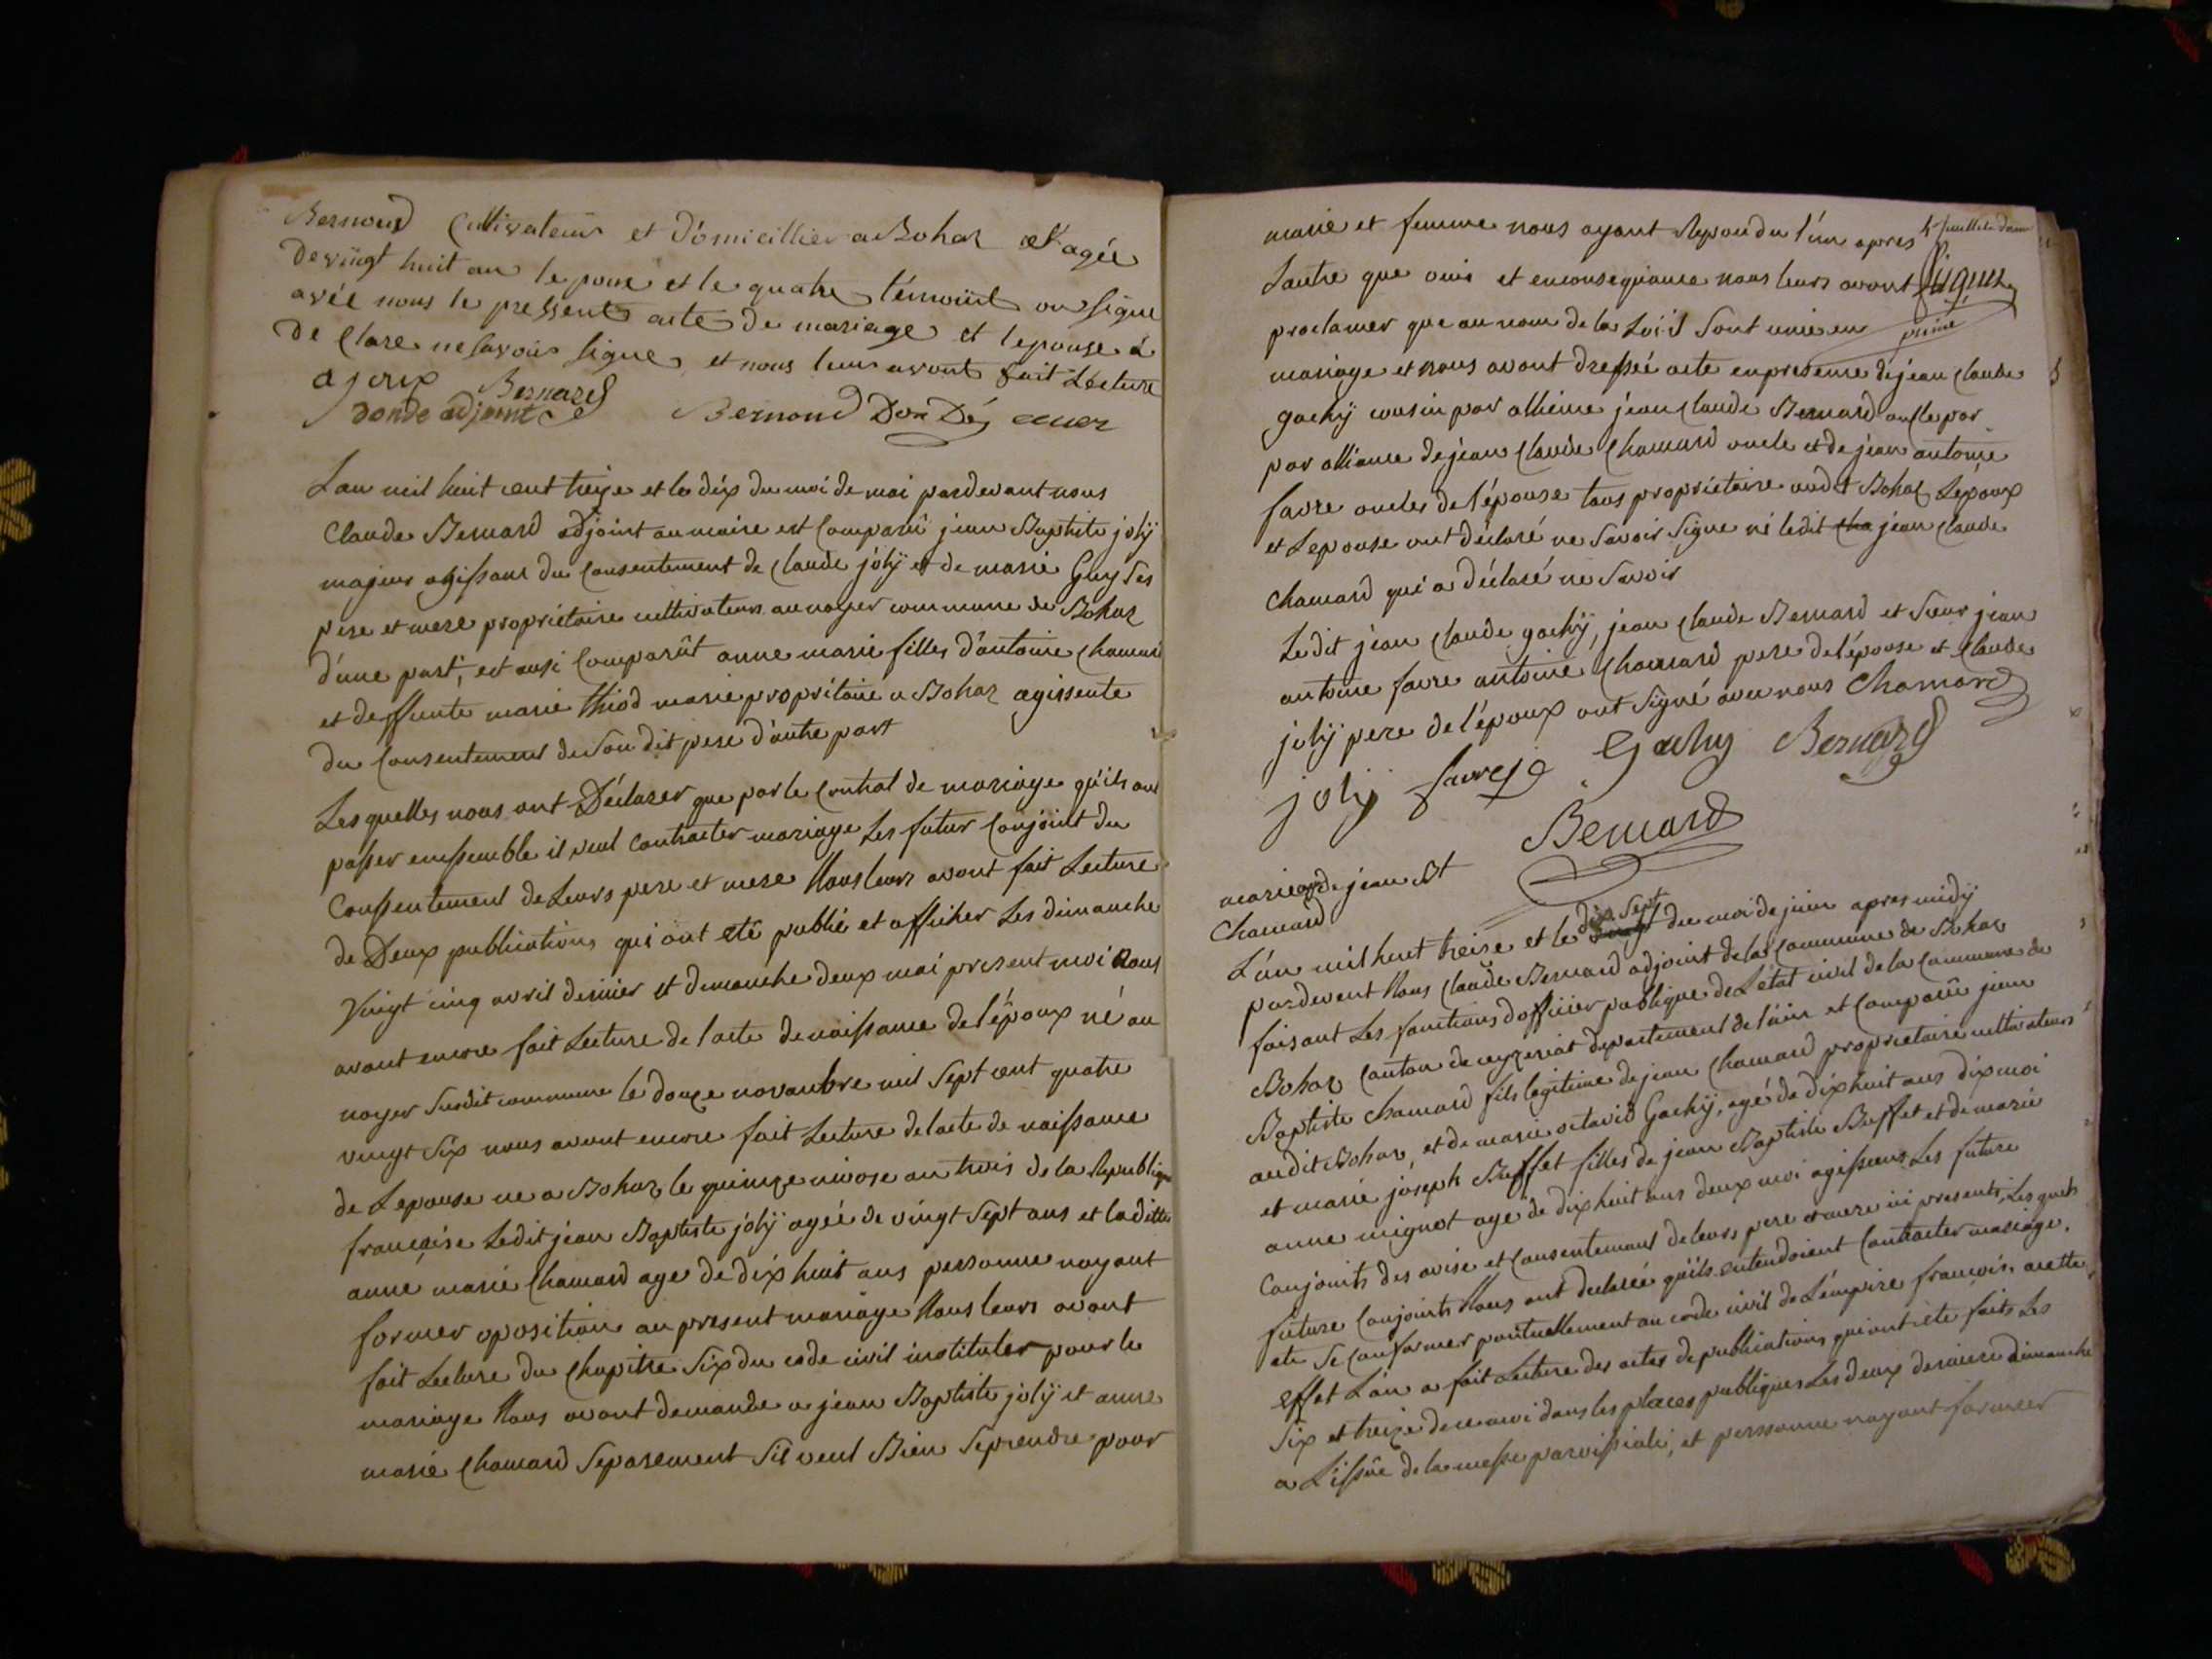 Bernoud Cultivateur et Domicillier a Bohaz et agée
de viingt huit an le poux et le quatre témoiint on signe
avée nous le pressent acte de mariage et lepouse à
de Clare ne savoir signe, et nous leur avont fait Lecture
ajoux Bernard
Donde adjoint Bernoud DonDé
Lan mil huit cent treize et le dix du moi de mai pardevant nous
Claude Bernard adjoint au maire est Comparût jean Baptiste jolÿ
majeur agissant du Consentement de Claude jolÿ et de marie Guy ses
pere et mere propriétaire cultivateurs au noyer commune de Bohaz
d'une part, est ausi Comparût anne marie filles d'antoine Chamard
et deffunte marie thiod marie propritaire a Bohaz agissente
du Consentement de son dit pere d'autre part
Lesquelles nous ont Déclarer que par le Contrat de mariage qu'ils ont
passer enssemble il veul Contracter mariage Les futur Conjoint du
Conssentement de Leurs pere et mere Nous leurs avont fait Lecture
de Deux publications qui ont eté publié et afficher Les dimanche
Vingt cinq avril dernier et dimanche deux mai present moi Nous
avont encore fait Lecture de lacte de naissance de l'époux né au
noyer susdit commune le douze novambre mil Sept cent quatre
vingt Six nous avont encore fait Lecture de lacte de naissance
de Lepouse ne a Bohaz le quinze nivose an trois de la Republique
françaisse Ledit jean Baptiste jolÿ agée de vingt Sept ans et laditte
anne marie Chamard age de dix huit ans personne nayant
former oposition au present mariage Nous leurs avont
fait Lecture du Chapitre Six du code civil instituler pour le
mariage Nous avont demande a jean Baptiste jolÿ et anne
marie Chamard Separement Sil veul Bien Seprendre pour
marie et femme nous ayant Repondu l'un apres
Lautre que oui et enconsequance nous leurs avont
proclamer que au nom de la Loi il Sont unie en
mariage et nous avont dressée acte en presence de jean Claude
gachÿ cousin par allience jean Claude Bernard oncle par
par alliance de jean Claude Chamard oncle et de jean antoine
favre oncles de l'épouse tous propriétaire audit Bohaz Lepoux
et Lepouse ont déclaré ne Savoir Signe ni ledit cha jean Claude
Chamard qui a déclaré ne Savoir
Ledit jean Claude gachÿ, jean Claude Bernard et Sieur jean
antoine favre antoine Chamard pere de l'épouse et Claude
jolÿ pere de l'époux ont Signé avec nous Chamard
jolÿ favre Gachy Bernard
Bernard
mariage de jean Bt
Chamard
L'an mil huit treise et le vingt dix Sept du moi de juin apres midÿ
pardevent Nous Claude Bernard adjoint de la Commune de Bohaz
faisant Les fonctions d'officier publique de L'état civil de la Commune de
Bohaz Canton de ceyzeriat departement de l'ain et Comparû jean
Baptiste Chamard fils legitime de jean Chamard propriétaire cultivateurs
audit Bohaz, et de marie octavie Gachÿ, agé de dix huit ans dix moi
et marie joseph Buffet filles de jean Baptiste Buffet et de marie
anne mignot age de dix huit ans deux moi agissans Les future
Conjoints des avise et Consentemant de leurs pere et mere ici presents, Lesquels
future Conjoints Nous ont declarée qu'ils entendoient Contracter mariage,
et Se Conformer pontuellement au code civil de L'empire françois, acette
effet L'on a fait Lecture des actes de publications qui ont ete faits Les
Six et treize de ce moi dans les places publiques Les deux derniere dimanche
a L'issûe de la messe parroissiale, et perssonne nayant former